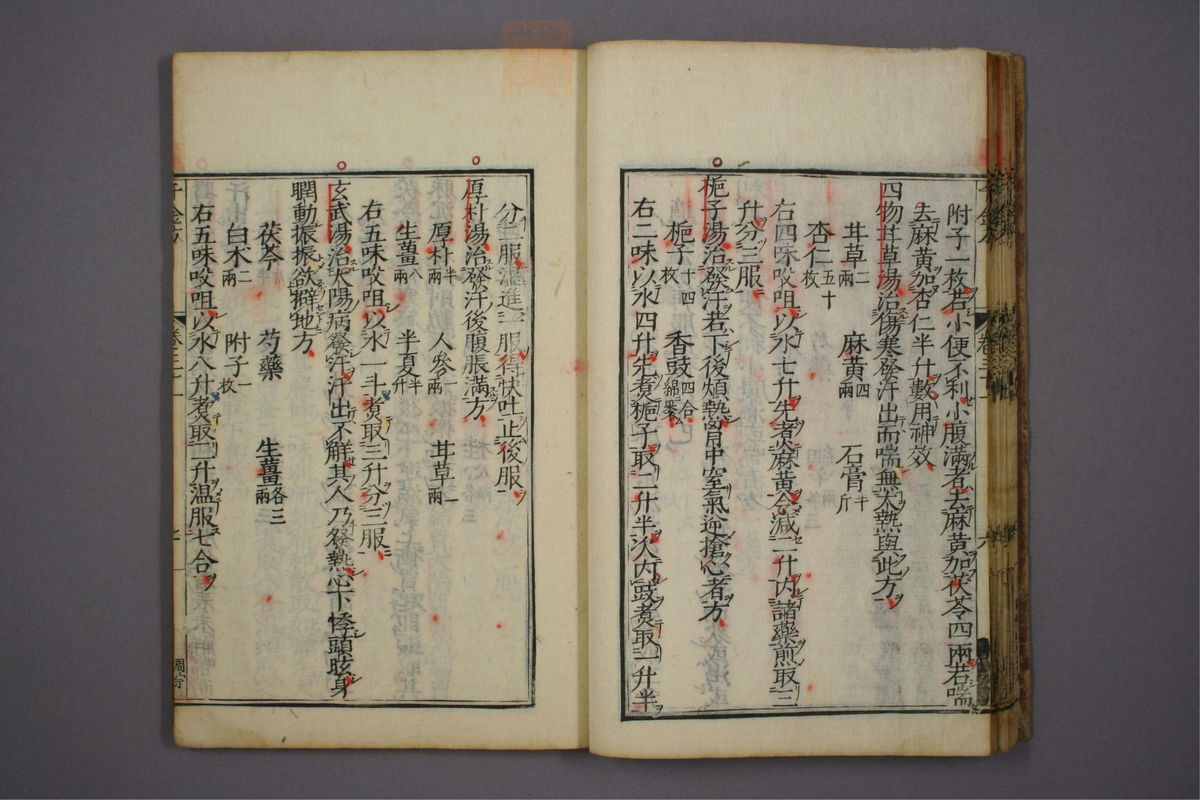 附子一枚若小便不利小腹滿者去麻黃加茯苓四兩若喘
去麻黃加杏仁半升數用神效
四物甘草湯治傷寒發汗出而喘無大熱與此方
甘草二兩 麻黃四兩 石膏半斤
杏仁五十枚
右四味㕮咀以水七升先煮麻黃令減二升內諸藥煎取三
升分三服
梔子湯治發汗若下後煩熱胷中窒氣逆搶心者方
梔子十四枚 香豉四合綿裹
右二味以水四升先煮梔子取二升半次內豉煮取一升半
分二服溫進一服得快吐止後服
厚朴湯治發汗後腹脹滿方
厚朴半兩 人參一兩 甘草一兩
生薑八兩 半夏半升
右五味㕮咀以水一斗煮取三升分三服
玄武湯治太陽病發汗汗出不解其人乃發熱心下悸頭眩身
瞤動振振欲擗地方
茯苓 芍藥 生薑各三兩
白术二兩 附子一枚
右五味㕮咀以水八升煮取二升溫服七合